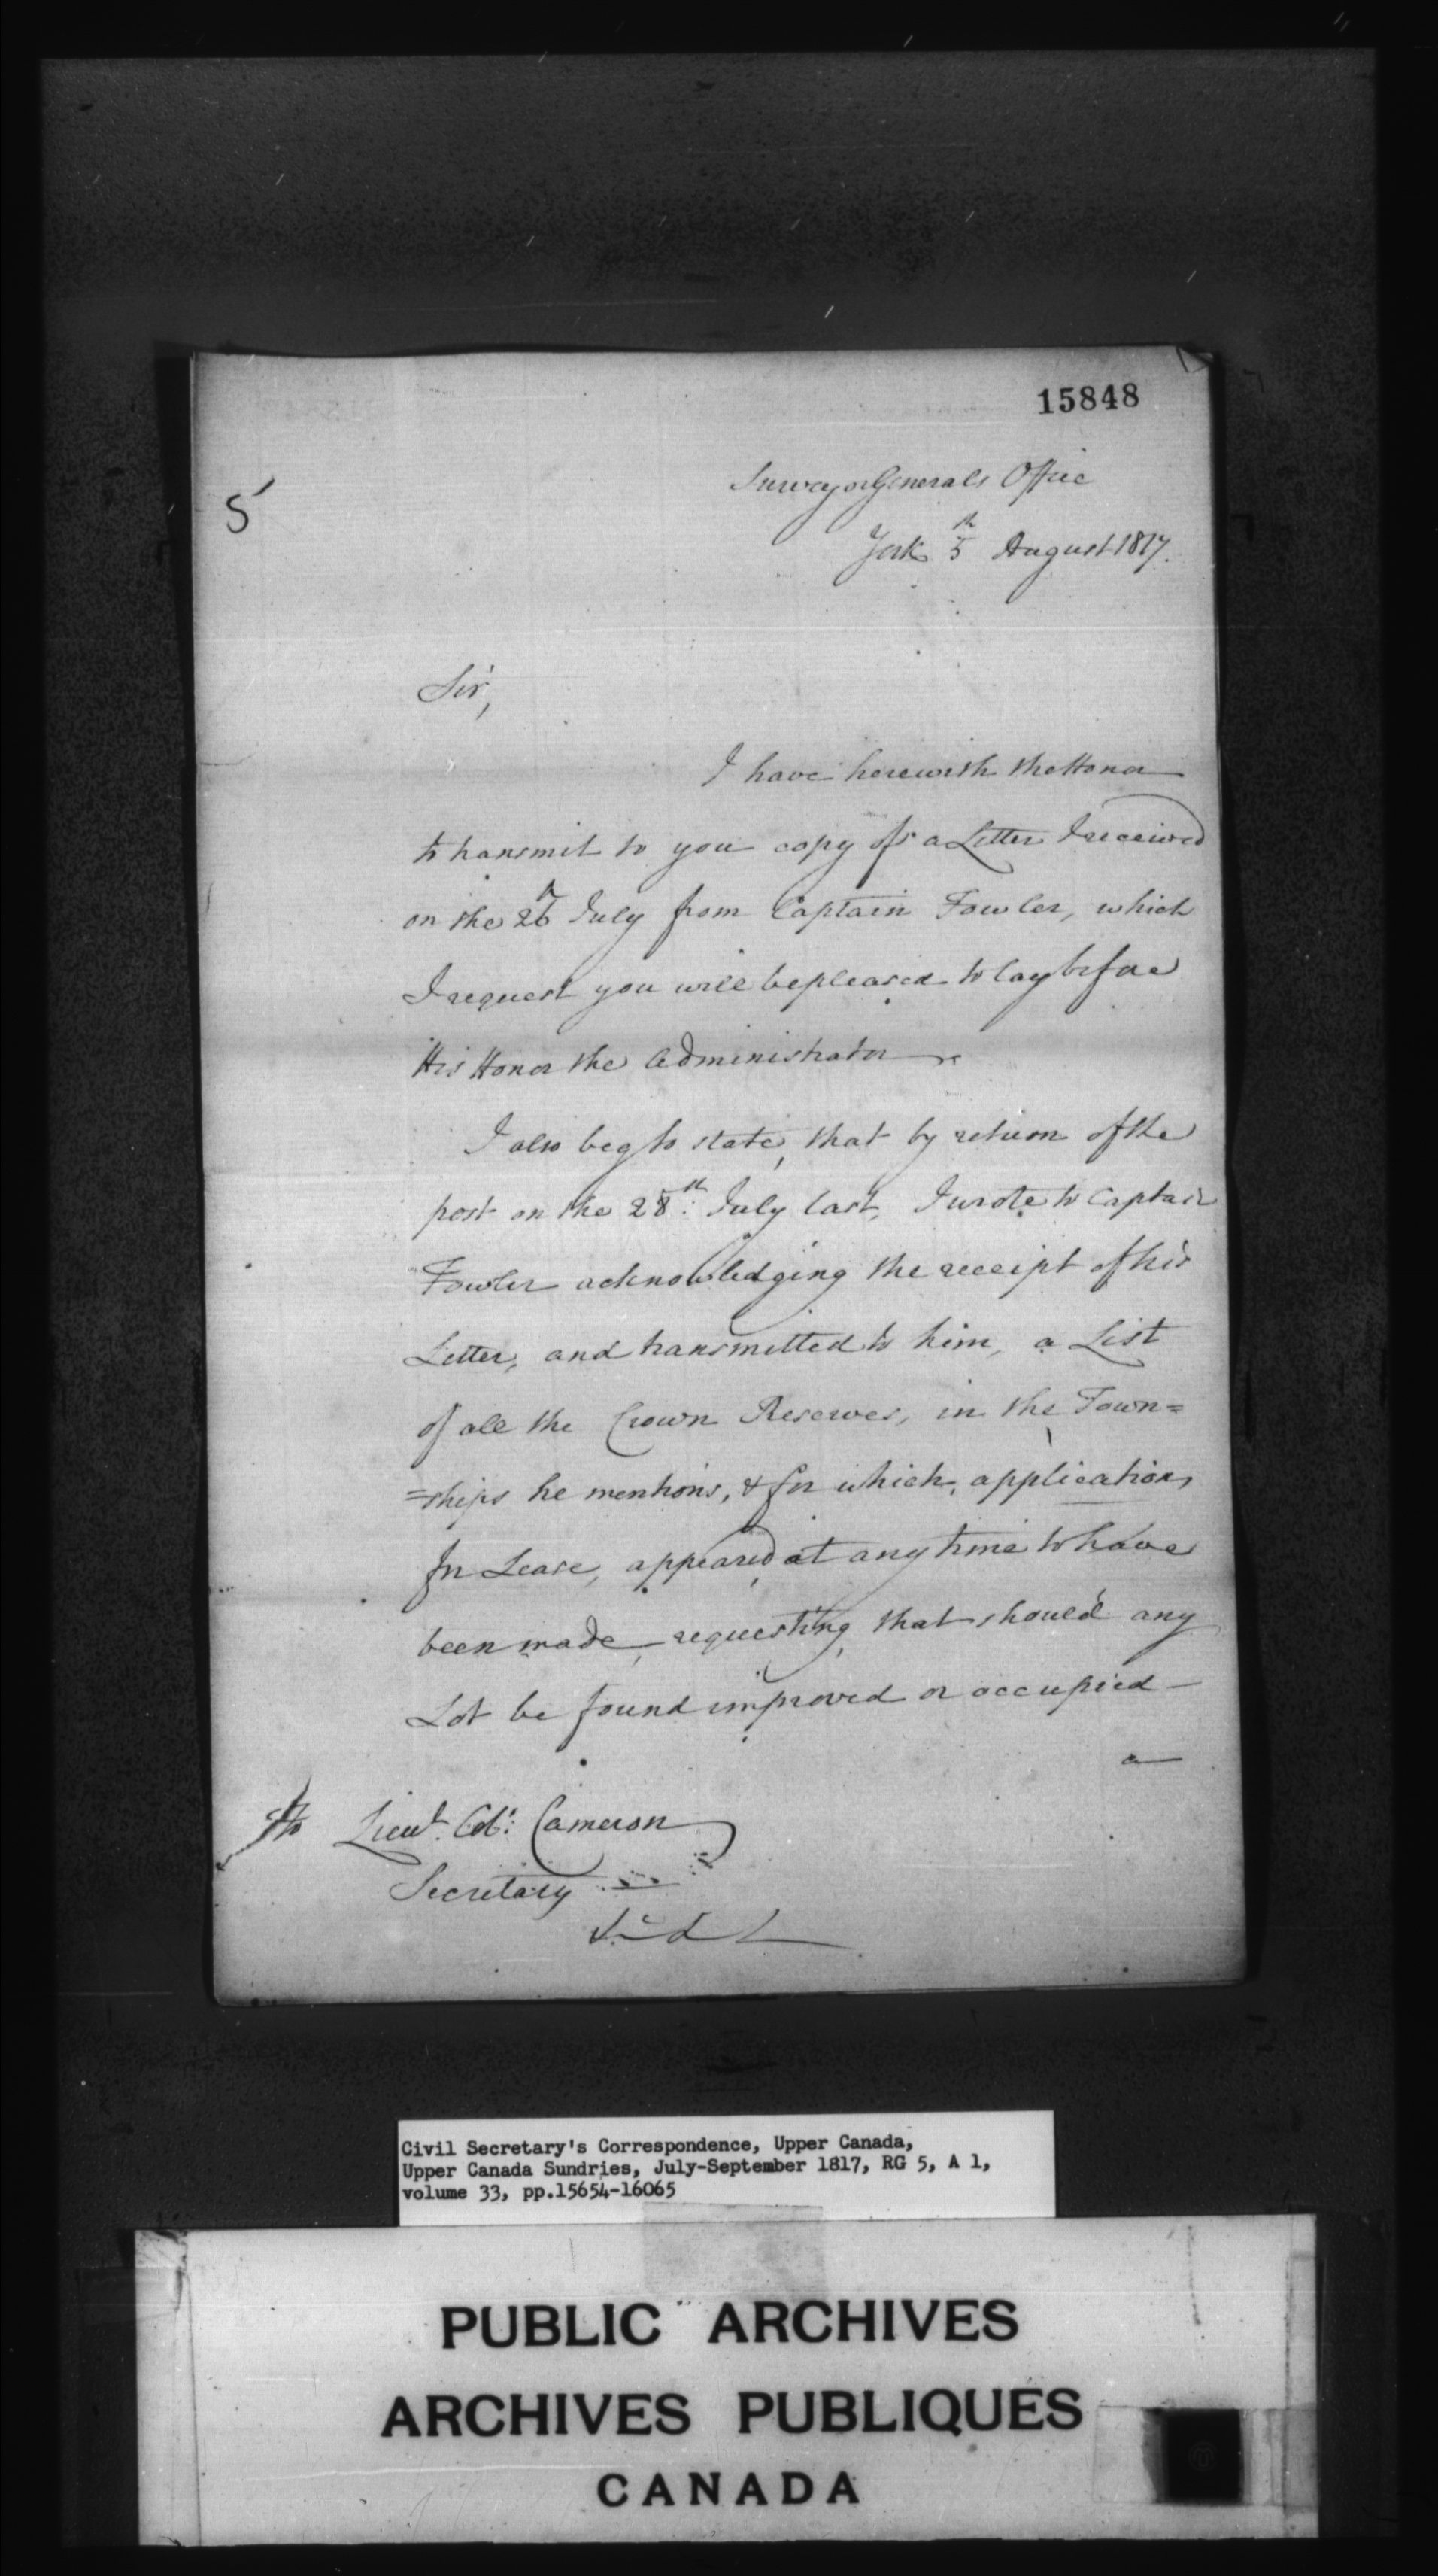 15848
5
Surveyor Generals Office
York 5th August 1817.
Sir,
I have herewith the Honor
to transmit to you copy of a Letter I received
on the 26th July from Captain Fowler, which
I request you will be pleased to lay before
His Honor the Administrator
I also beg to state, that by return of the
post on the 28th July last, I wrote to Captain
Fowler acknowledging the receipt of his
Letter, and transmitted to him, a List
of all the Crown Reserves, in the Town=
=ships he mentions, & for which, application,
for Lease, appeared at any time to have
been made, requesting, that should any
Lot be found improved or occupied
a
To Lieut. Col: Cameron
Secretary
&c &c
Civil Secretary's Correspondence, Upper Canada,
Upper Canada Sundries, July-September 1817, RG 5, A 1,
volume 33, pp.15654-16065
PUBLIC ARCHIVES
ARCHIVES PUBLIQUES
CANADA